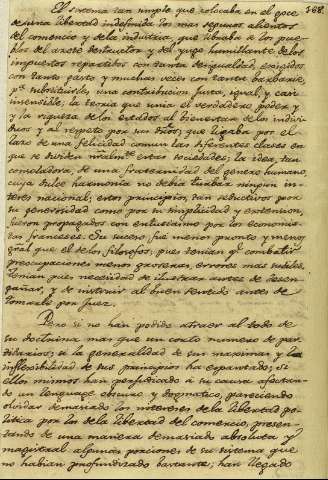 368.
El sistema tan simple que colocaba en el goce
de una libertad indefinida los mas seguros alientos
del comercio y de la industria, que libraba a los pue-
blos del azote destructor y del yugo humillante de los
impuestos repartidos con tanta desigualdad, exigidos
con tanto gasto y muchas veces con tanta barbarie,
pª substituirles una contribucion justa, igual, y casi
insensible; la teoria que unia el verdadero poder y
y la riqueza de los estados al bienestar de los indivi-
duos y al respeto por sus dros; que ligaba por el
lazo de una felicidad comun las diferentes clases en
que se dividen naturalmte estas sociedades; la idea, tan
consoladora, de una fraternidad del genero humano,
cuya dulce harmonia no debia turbar ningun in-
teres nacional; estos principios, tan seductivos por
su generosidad como por su simplicidad y extension,
fueron propagados con entusiasmo por los economis-
tas franceses. Su suceso fue menos pronto y menos
gral que el de los filosofos, que tenian qe combatir
preocupaciones menos groseras, errores mas sutiles.
Tenian que necesidad de ilustrar antes de desen-
gañar, y de instruir al buen sentido antes de
tomarle por juez.
Pero si no han podido atraer al todo de
su doctrina mas que un corto numero de par-
tidarios; si la generalidad de sus maximas y la
inflexibilidad de sus principios ha espantado; si
ellos mismos han perjudicado a su causa afectan-
do un lenguage obscuro y dogmatico, pareciendo
olvidar demasiado los intereses de la libertad po-
litica por los de la libertad del comercio, presen-
tando de una manera demasiado absoluta y
magistral algunas porciones de su sistema que
no habian profundizado bastante; han llegado